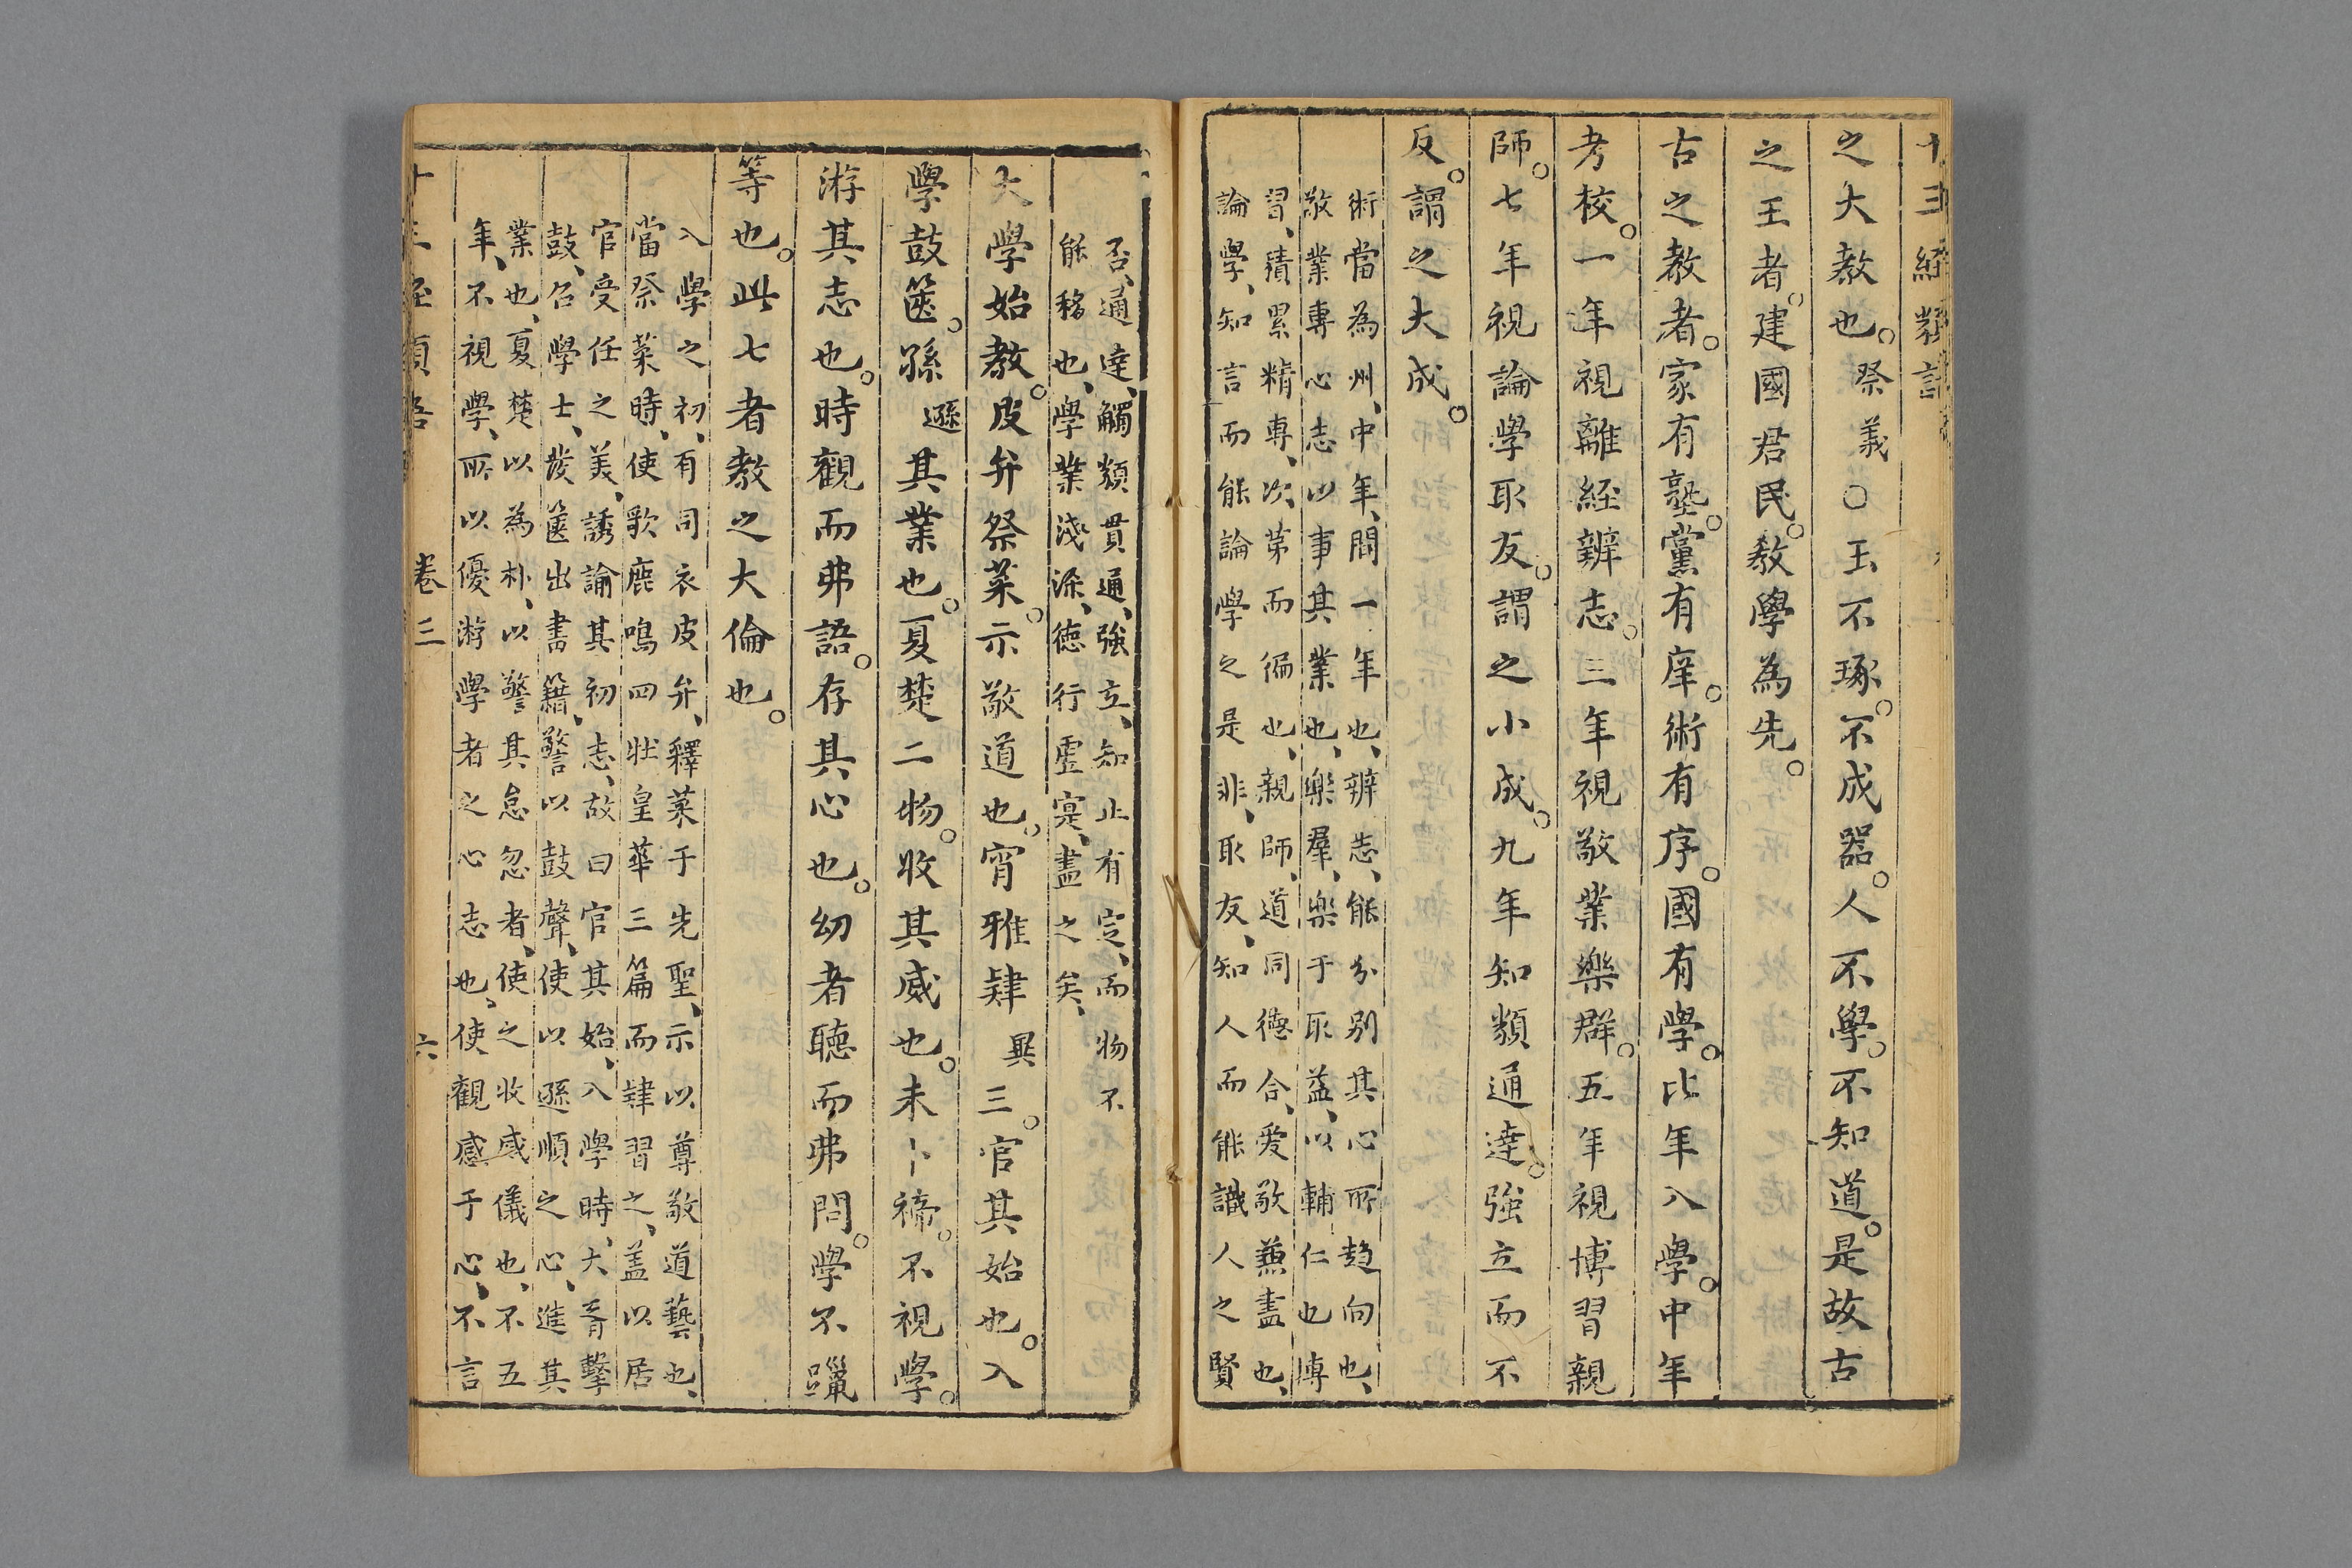 十三經類語
之大教也。祭義○玉不琢。不成器。人不學。不知道。是故古
之王者。建國君民。教學為先。
古之教者。家有塾。黨有庠。術有序。國有學。比年入學。中年
考校。一年視離經辨志。三年視敬業樂群。五年視博習親
師。七年視論學取友。謂之小成。九年知類通達。強立而不
反。謂之大成。
術當為州、中年、間一年也、辨志、能分別其心所趨向也、
敬業專心志以事其業也、樂羣、樂于取益、以輔仁也博
習、積累精專、次苐而徧也、親師、道同德合、爱敬兼盡也、
論學、知言而能論學之是非、取友、知人而能識人之賢
否、通達、觸類貫通、強立、知止有定、而物不
能移也、學業淺深、德行虛寔、盡之矣、
大學始教。皮弁祭菜。示敬道也。宵雅肄異三。官其始也。入
學鼓篋。孫遜其業也。夏楚二物。收其威也。未卜禘。不視學。
游其志也。時觀而弗語。存其心也。幼者聽而弗問。學不躐
等也。此七者教之大倫也。
入學之初、有司衣皮弁、釋菜于先聖、示以尊敬道藝也、
當祭菜時、使歌鹿鳴四牡皇華三篇而肄習之、盖以居
官受任之美、誘諭其初志、故曰官其始、入學時、大胥擊
鼓、召學士、發篋出書籍、警以鼓聲、使以遜順之心、進其
業也、夏楚以為朴、以警其怠忽者、使之收威儀也、不五
年、不視學、所以優游學者之心志也、使觀感于心、不言
十三經類語 卷三 六